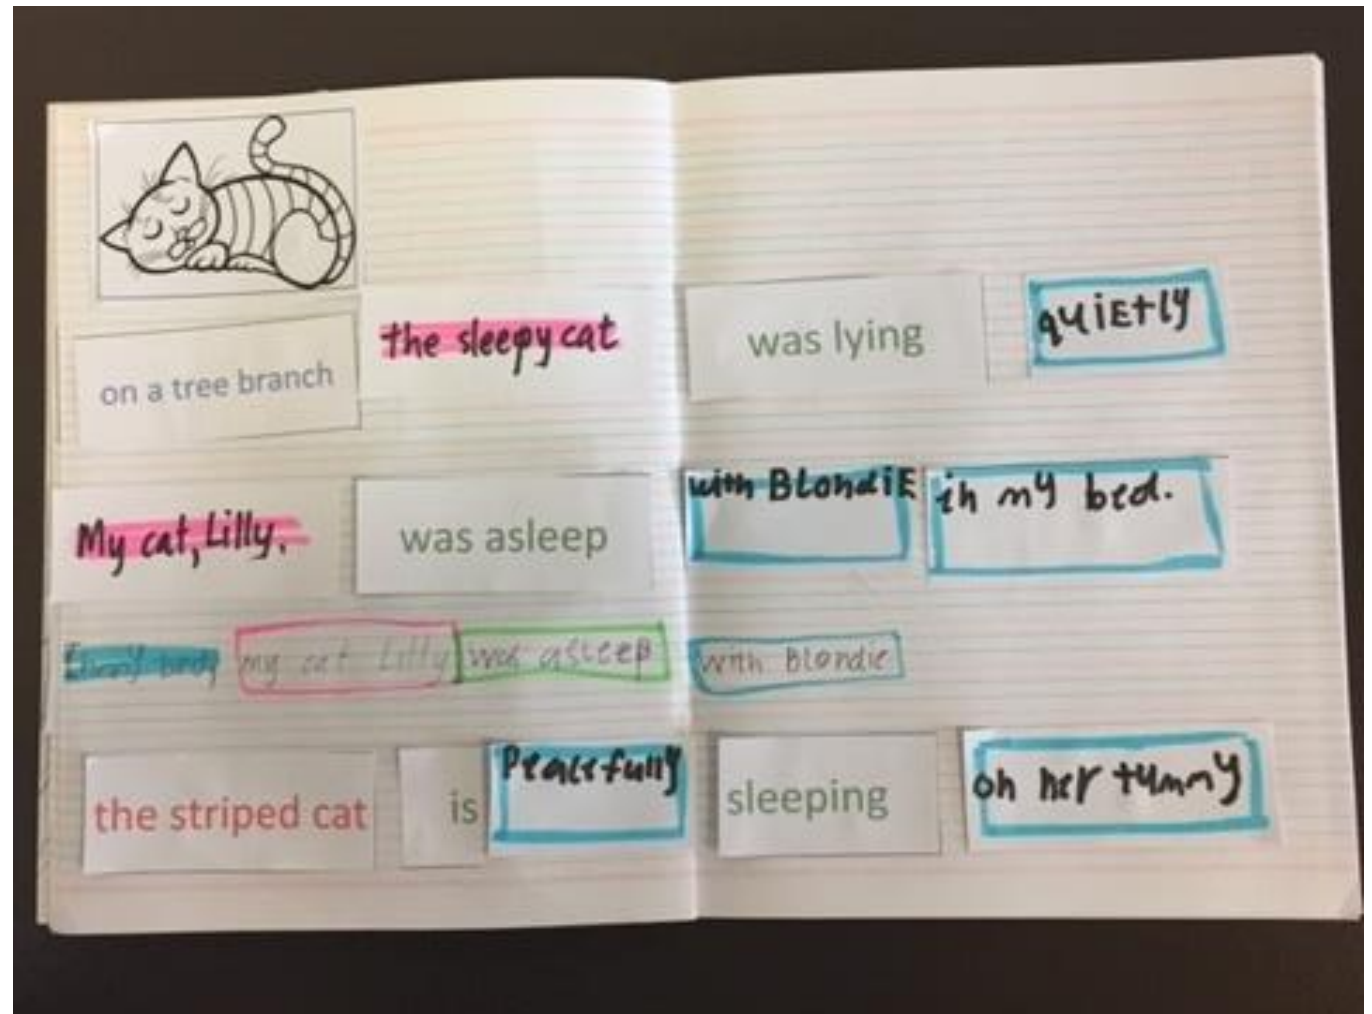 on a tree branch the sleepy cat was lying quiEtly
My cat, Lilly. was asleep with BLondiE in my bed.
my cat Lilly was asleep with Blondie
the striped cat is Peacefully sleeping on her tummy